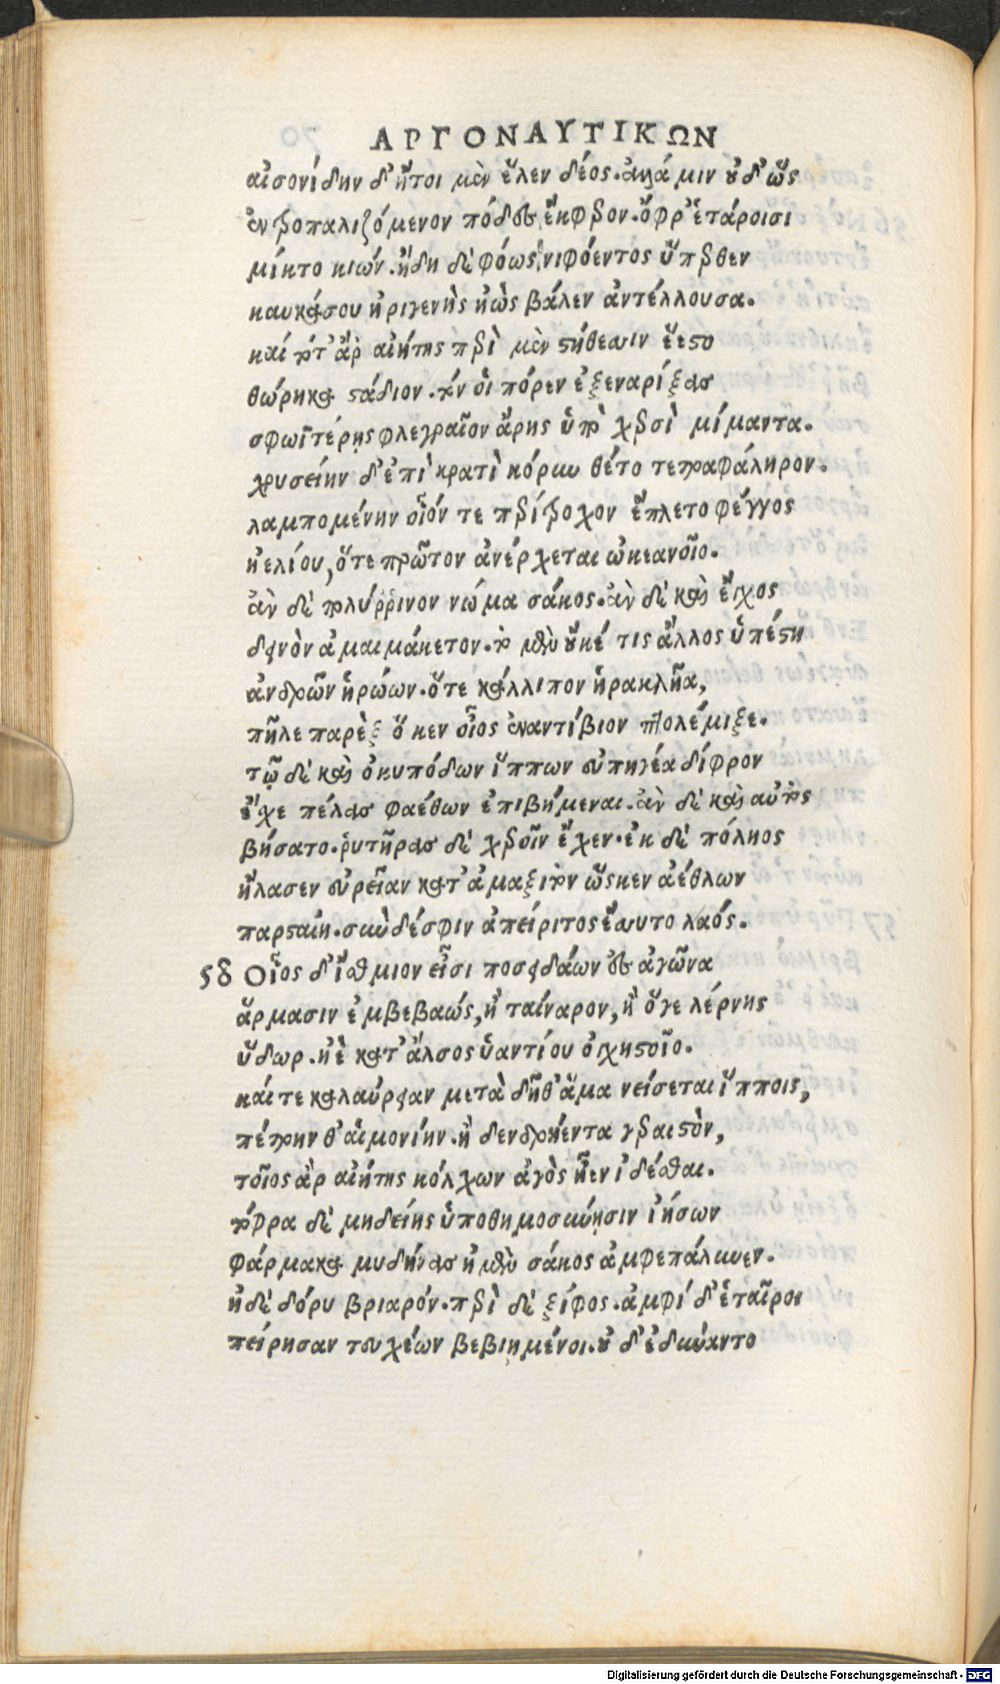 ΑΡΓΟΝΑΥΤΙΚΩΝ
αἰσονίδην δ' ἤτοι μὲν ἕλεν δέος. ἀλλά μιν οὐδ' ὣς
ἐντροπαλιζόμενον πόδες ἔκφερον. ὄφρ' ἑτάροισι
μίκτο κιών. ἤδη δὲ φόως νιφόεντος ὕπερθεν
καυκάσου ἠριγενὴς ἠὼς βάλεν ἀντέλλουσα.
καί τότ' ἄρ αἰήτης περὶ μὲν στήθεσσιν ἕεστο
θώρηκα στάδιον. τόν οἱ πόρεν ἐξεναρίξας
σφωϊτέρῃς φλεγραῖον ἄρης ὑπὸ χερσὶ μίμαντα.
χρυσείην δ' ἐπὶ κρατὶ κόρυν θέτο τετραφάληρον.
λαμπομένην οἷόν τε περίτροχον ἔπλετο φέγγος
ἠελίου, ὅτε πρῶτον ἀνέρχεται ὠκεανοῖο.
ἂν δὲ πολύρρινον νώμα σάκος. ἂν δὲ καὶ ἔγχος
δεινὸν ἀμαιμάκετον. τὸ μὲν οὔκέ τις ἄλλος ὑπέστη
ἀνδρῶν ἡρώων. ὅτε κάλλιπον ἡρακλῆα,
τῆλε παρὲξ ὅ κεν οἶος ἐναντίβιον πτολέμιξε.
τῷ δὲ καὶ ὀκυπόδων ἵππων εὐπηγέα δίφρον
ἔσχε πέλας φαέθων ἐπιβήμεναι. ἂν δὲ καὶ αὐτὸς
βήσατο. ῥυτῆρας δὲ χερσῖν ἔχεν. ἐκ δὲ πόληος
ἤλασεν εὐρεῖαν κατ' ἀμαξιτὸν ὥς κεν ἀέθλων
παρσταίη. σὺν δέ σφιν ἀπείριτος ἔσσυτο λαός.
58 Οἷος δ' ἴσθμιον εἶσι ποσειδάων ἐς ἀγῶνα
ἅρμασιν ἐμβεβαώς, ἢ ταίναρον, ἢ ὅγε λέρνης
ὕδωρ. ἠὲ κατ' ἄλσος ὑαντίου ὀγχηστοῖο.
καί τε καλαύρειαν μετὰ δῆθ' ἅμα νείσεται ἵπποις,
πέτρην θ' αἱμονίην. ἢ δενδρήεντα γεραιστὸν,
τοῖος ἂρ αἰήτης κόλχων ἀγὸς ἦεν ἰδέσθαι.
τόφρα δὲ μηδείης ὑποθημοσύνῃσιν ἰήσων
φάρμακα μυδήνας ἠμὲν σάκος ἀμφεπάλυνεν.
ἠδὲ δόρυ βριαρόν. περὶ δὲ ξίφος. ἀμφί δ' ἑταῖροι
πείρησαν τευχέων βεβιημένοι. οὐ δ' ἐδύναντο
Digitalisierung gefördert durch die Deutsche Forschungsgemeinschaft - DFG